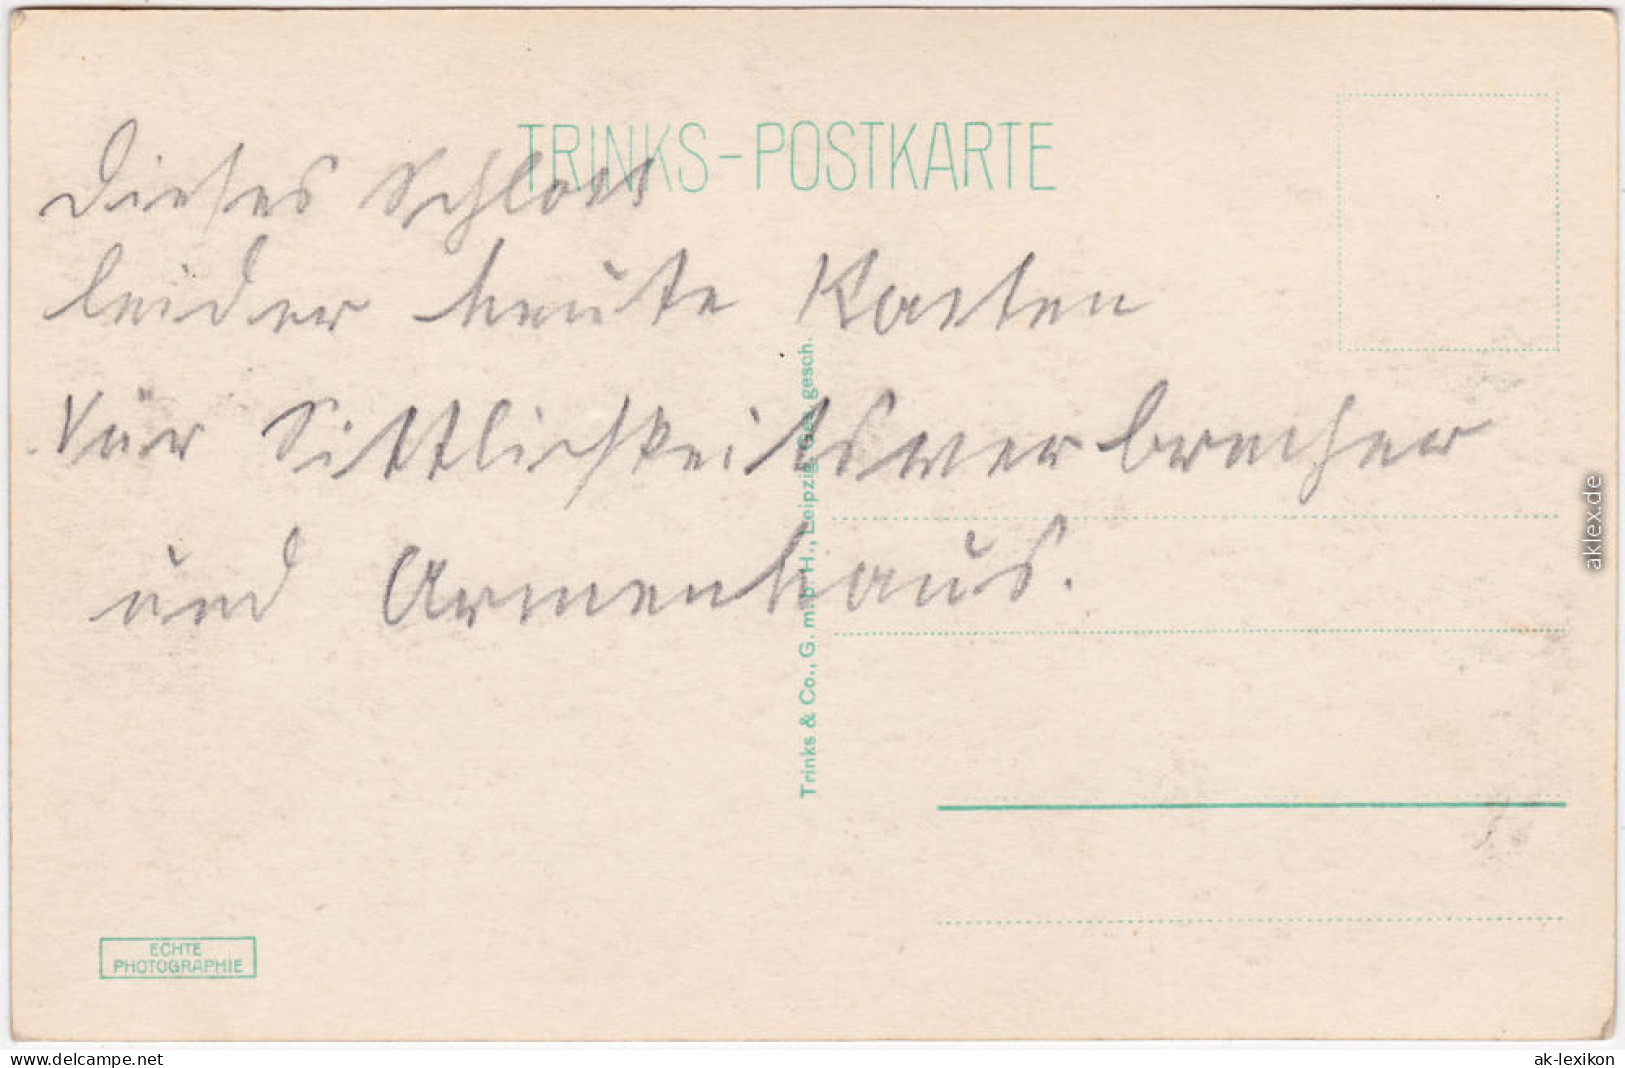 TRINKS-POSTKARTE
Dieses Schloss
leider heute Kasten
für Sittlichkeitsverbrecher
und Armenhaus.
Trinks & Co., G. m. b. H., Leipzig. Ges. gesch.
ECHTE
PHOTOGRAPHIE
aklex.de
www.delcampe.net
ak-lexikon